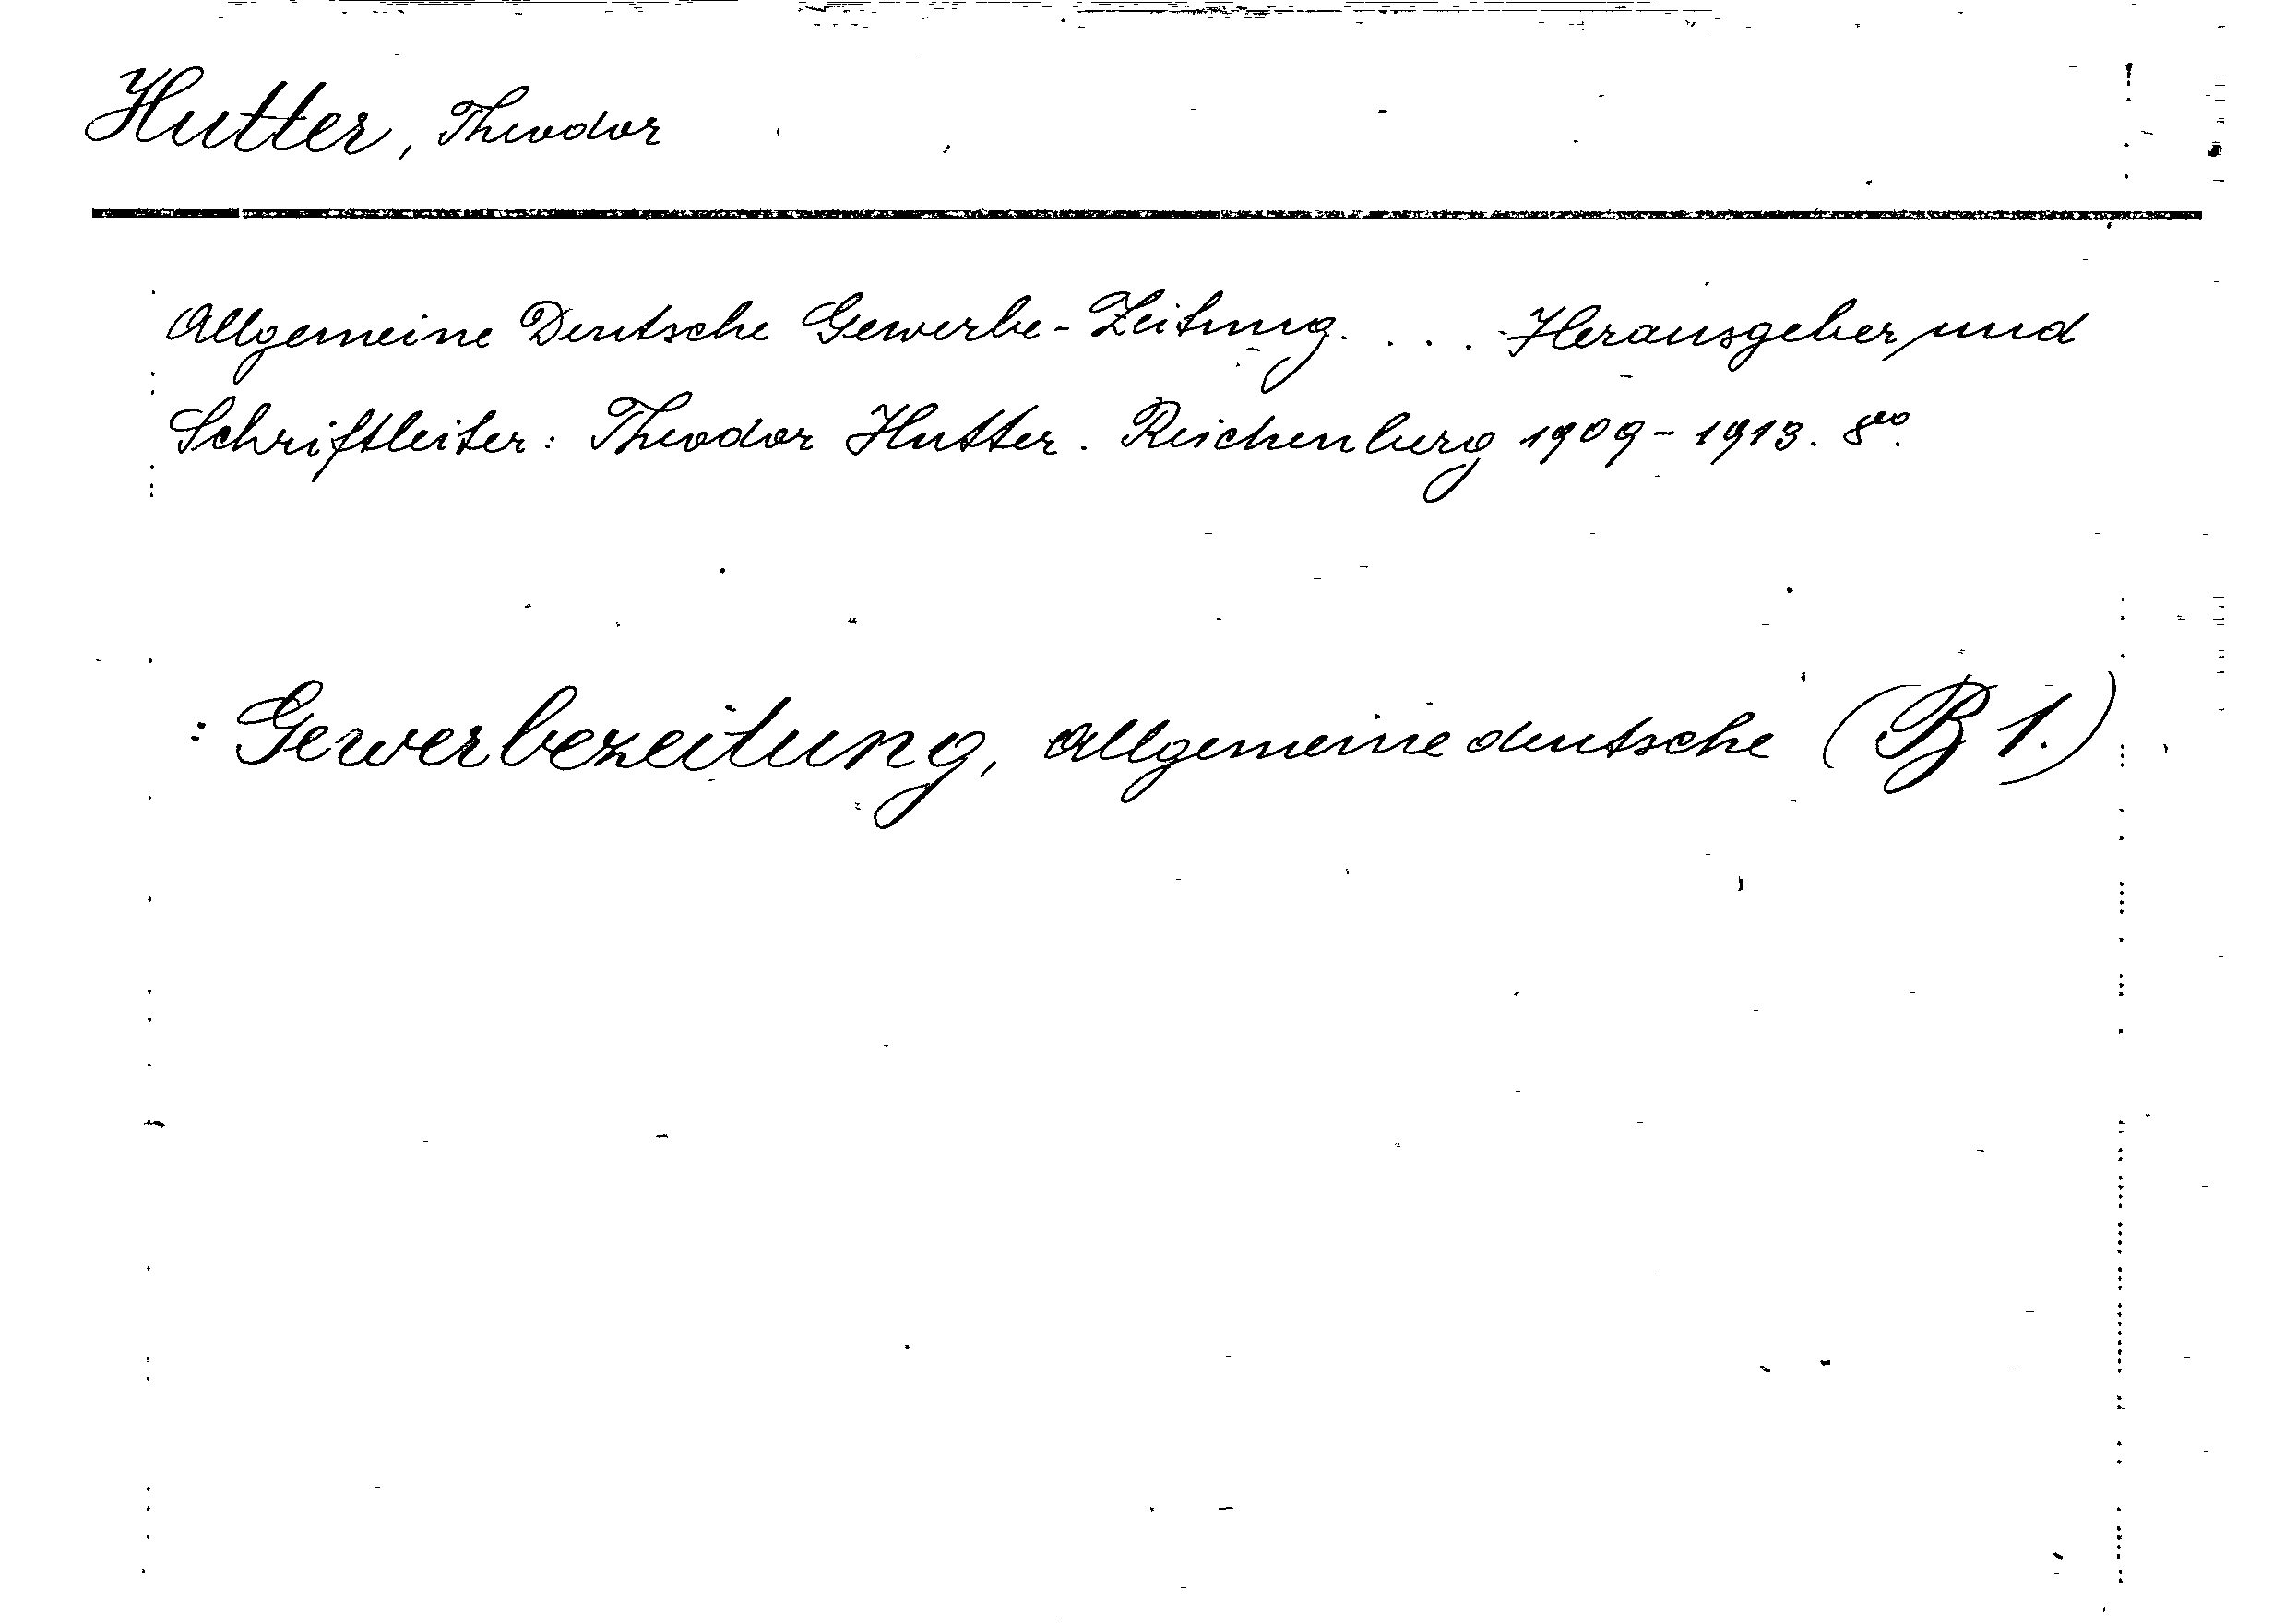 Hutter, Theodor
Allgemeine Deutsche Gewerbe-Zeitung. . . . Herausgeber und
Schriftleiter: Theodor Hutter. Reichenberg 1909-1913. 8vo.
: Gewerbezeitung, allgemeine deutsche (B 1.)